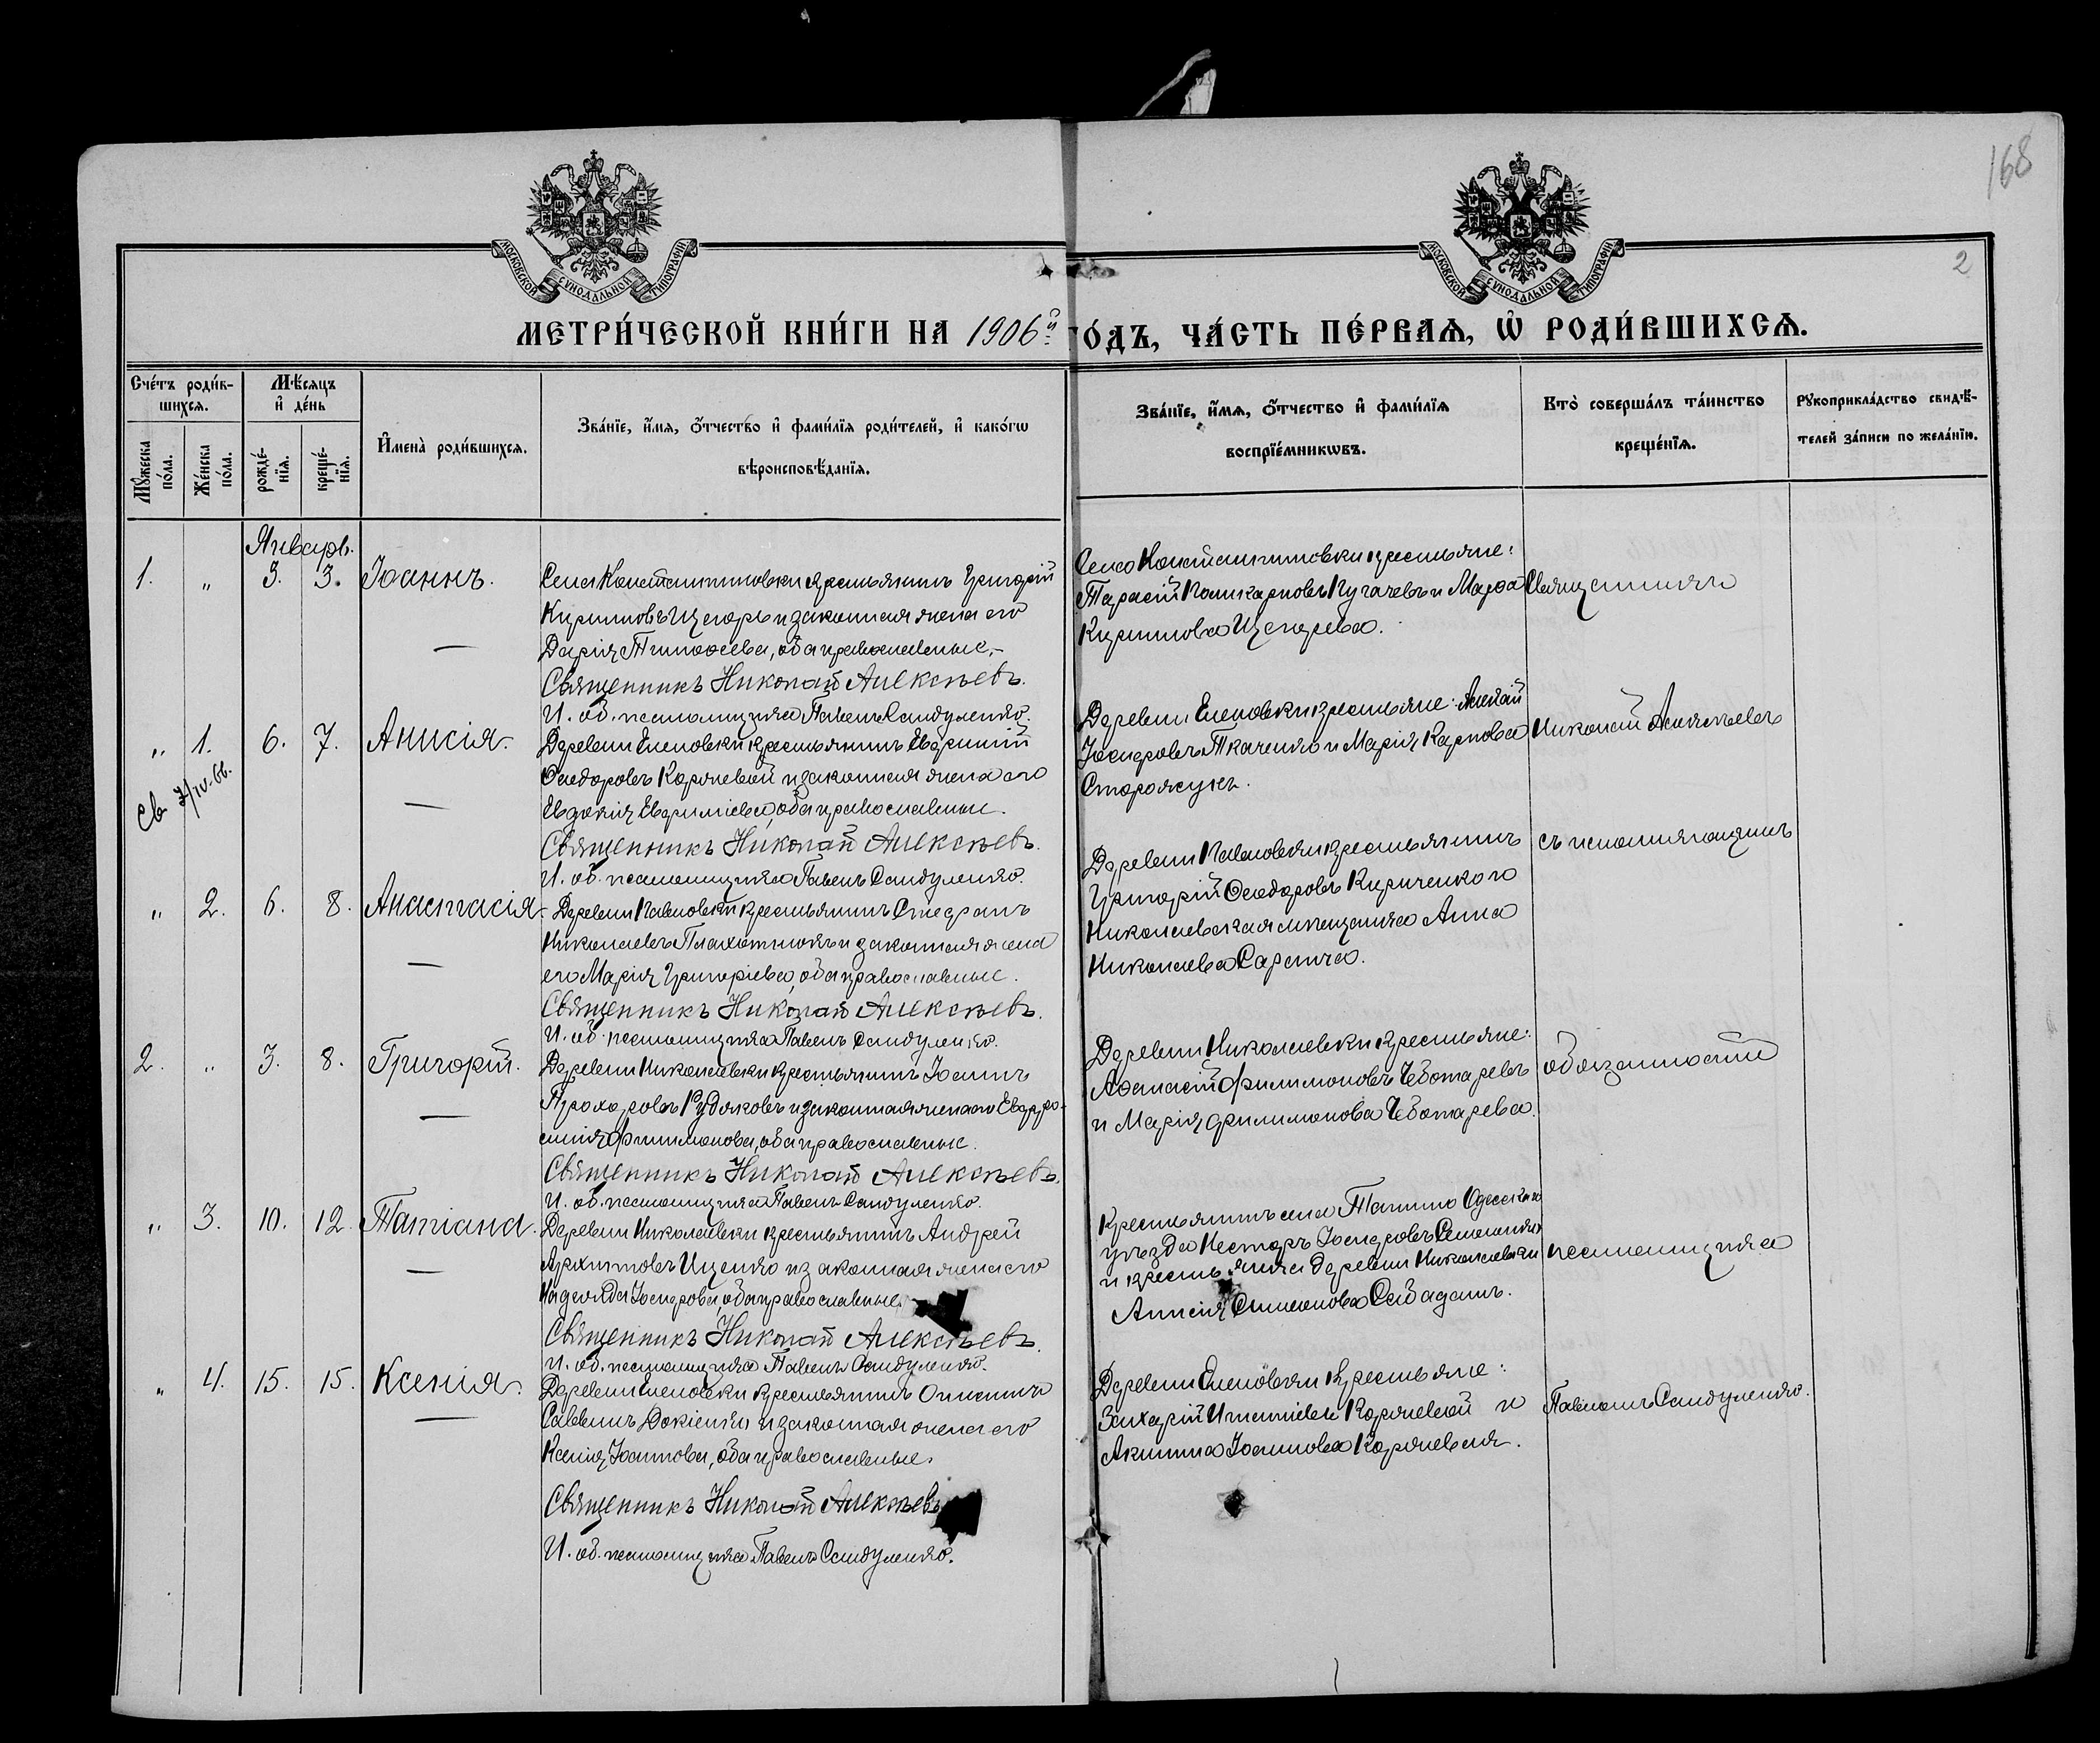 168
2
МОСКОВСКОЙ СѴНОДАЛЬНОЙ ТИПОГРАФІИ
МОСКОВСКОЙ СѴНОДАЛЬНОЙ ТИПОГРАФІИ
МЕТРИ́ЧЕСКОЙ КНИ́ГИ НА 1906й ГО́ДЪ, ЧА́СТЬ ПЕ́РВАѦ, Ѽ РОДИ́ВШИХСѦ.
Сче́тъ роди́вшихсѧ.
Мꙋжеска по́ла.
Же́нска по́ла.
Мѣ́сяцъ и҆ де́нь
рожде́нїѧ.
креще́нїѧ.
И҆мена̀ роди́вшихсѧ.
Зва́нїе, и҆́мѧ, ѻ҆́тчество и҆ фами́лїѧ роди́телей, и҆ како́гѡ вѣроисповѣ́данїѧ.
Зва́нїе, и҆́мѧ, ѻ҆́тчество и҆ фами́лїѧ воспрїе́мникѡвъ.
Кто̀ соверша́лъ та́инство креще́нїѧ.
Рꙋкоприкла́дство свидѣ́телей за́писи по жела́нїю.
Январь.
1. „ 3. 3. Іоаннъ.
Села Константиновки крестьянинъ Григорій
Кирилловъ Щегорь и законная жена его
Дарія Тимоѳеева, оба православные.-
Священникъ Николай Алексѣевъ.
И. об. псаломщика Павелъ Сандуленко.
Села Константиновки крестьяне:
Тарасій Поликарповъ Пугачевъ и Марѳа
Кириллова Щегорева.
Священникъ
„ 1. 6. 7. Анисія.
Св 7/IV-66.
Деревни Еленовки крестьянинъ Евфимій
Ѳеодоровъ Корячевой и законная жена его
Евдокія Евфиміева, оба православные.
Священникъ Николай Алексѣевъ.
И. об. псаломщика Павелъ Сандуленко.
Деревни Еленовки крестьяне:
Іосифовъ Ткаченко и Марія Карпова
Сторожукъ.
Николай Алексѣевъ
„ 2. 6. 8. Анастасія.
Деревни Павловки крестьянинъ Стефанъ
Николаевъ Плахотнюкъ и законная жена
его Марія Григоріева, оба православные.
Священникъ Николай Алексѣевъ.
И. об. псаломщика Павелъ Сандуленко.
Деревни Павловки крестьянинъ
Григорій Ѳеодоровъ Кириченко и
Николаевская мѣщанка Анна
Николаева
съ исполняющимъ
2. „ 3. 8. Григорій.
Деревни Николаевки крестьянинъ Іоаннъ
Прохоровъ Рудяковъ и законная жена его Евфро-
синія Филимонова, оба православные.
Священникъ Николай Алексѣевъ.
И. об. псаломщика Павелъ Сандуленко.
Деревни Николаевки крестьяне:
Аѳанасій Филимоновъ Чеботаревъ
и Марія Филимонова Чеботарева.
обязанности
„ 3. 10. 12. Татіана.
Деревни Николаевки крестьянинъ Андрей
Архиповъ Ищенко и законная жена его
Надежда Іосифова, оба православные.
Священникъ Николай Алексѣевъ.
И. об. псаломщика Павелъ Сандуленко.
Крестьянинъ села Одесскаго
уѣзда Несторъ Іосифовъ
и крестьянка деревни Николаевки
Анисія Симеонова
псаломщика
„ 4. 15. 15. Ксенія.
Деревни Еленовки крестьянинъ
Саввинъ Докіенко и законная жена его
Ксенія Іоаннова, оба православные.
Священникъ Николай Алексѣевъ
И. об. псаломщика Павелъ Сандуленко.
Деревни Еленовки крестьяне:
Захарій Игнатіевъ Корячевой и
Акилина Іоаннова Корячевая.
Павломъ Сандуленко.